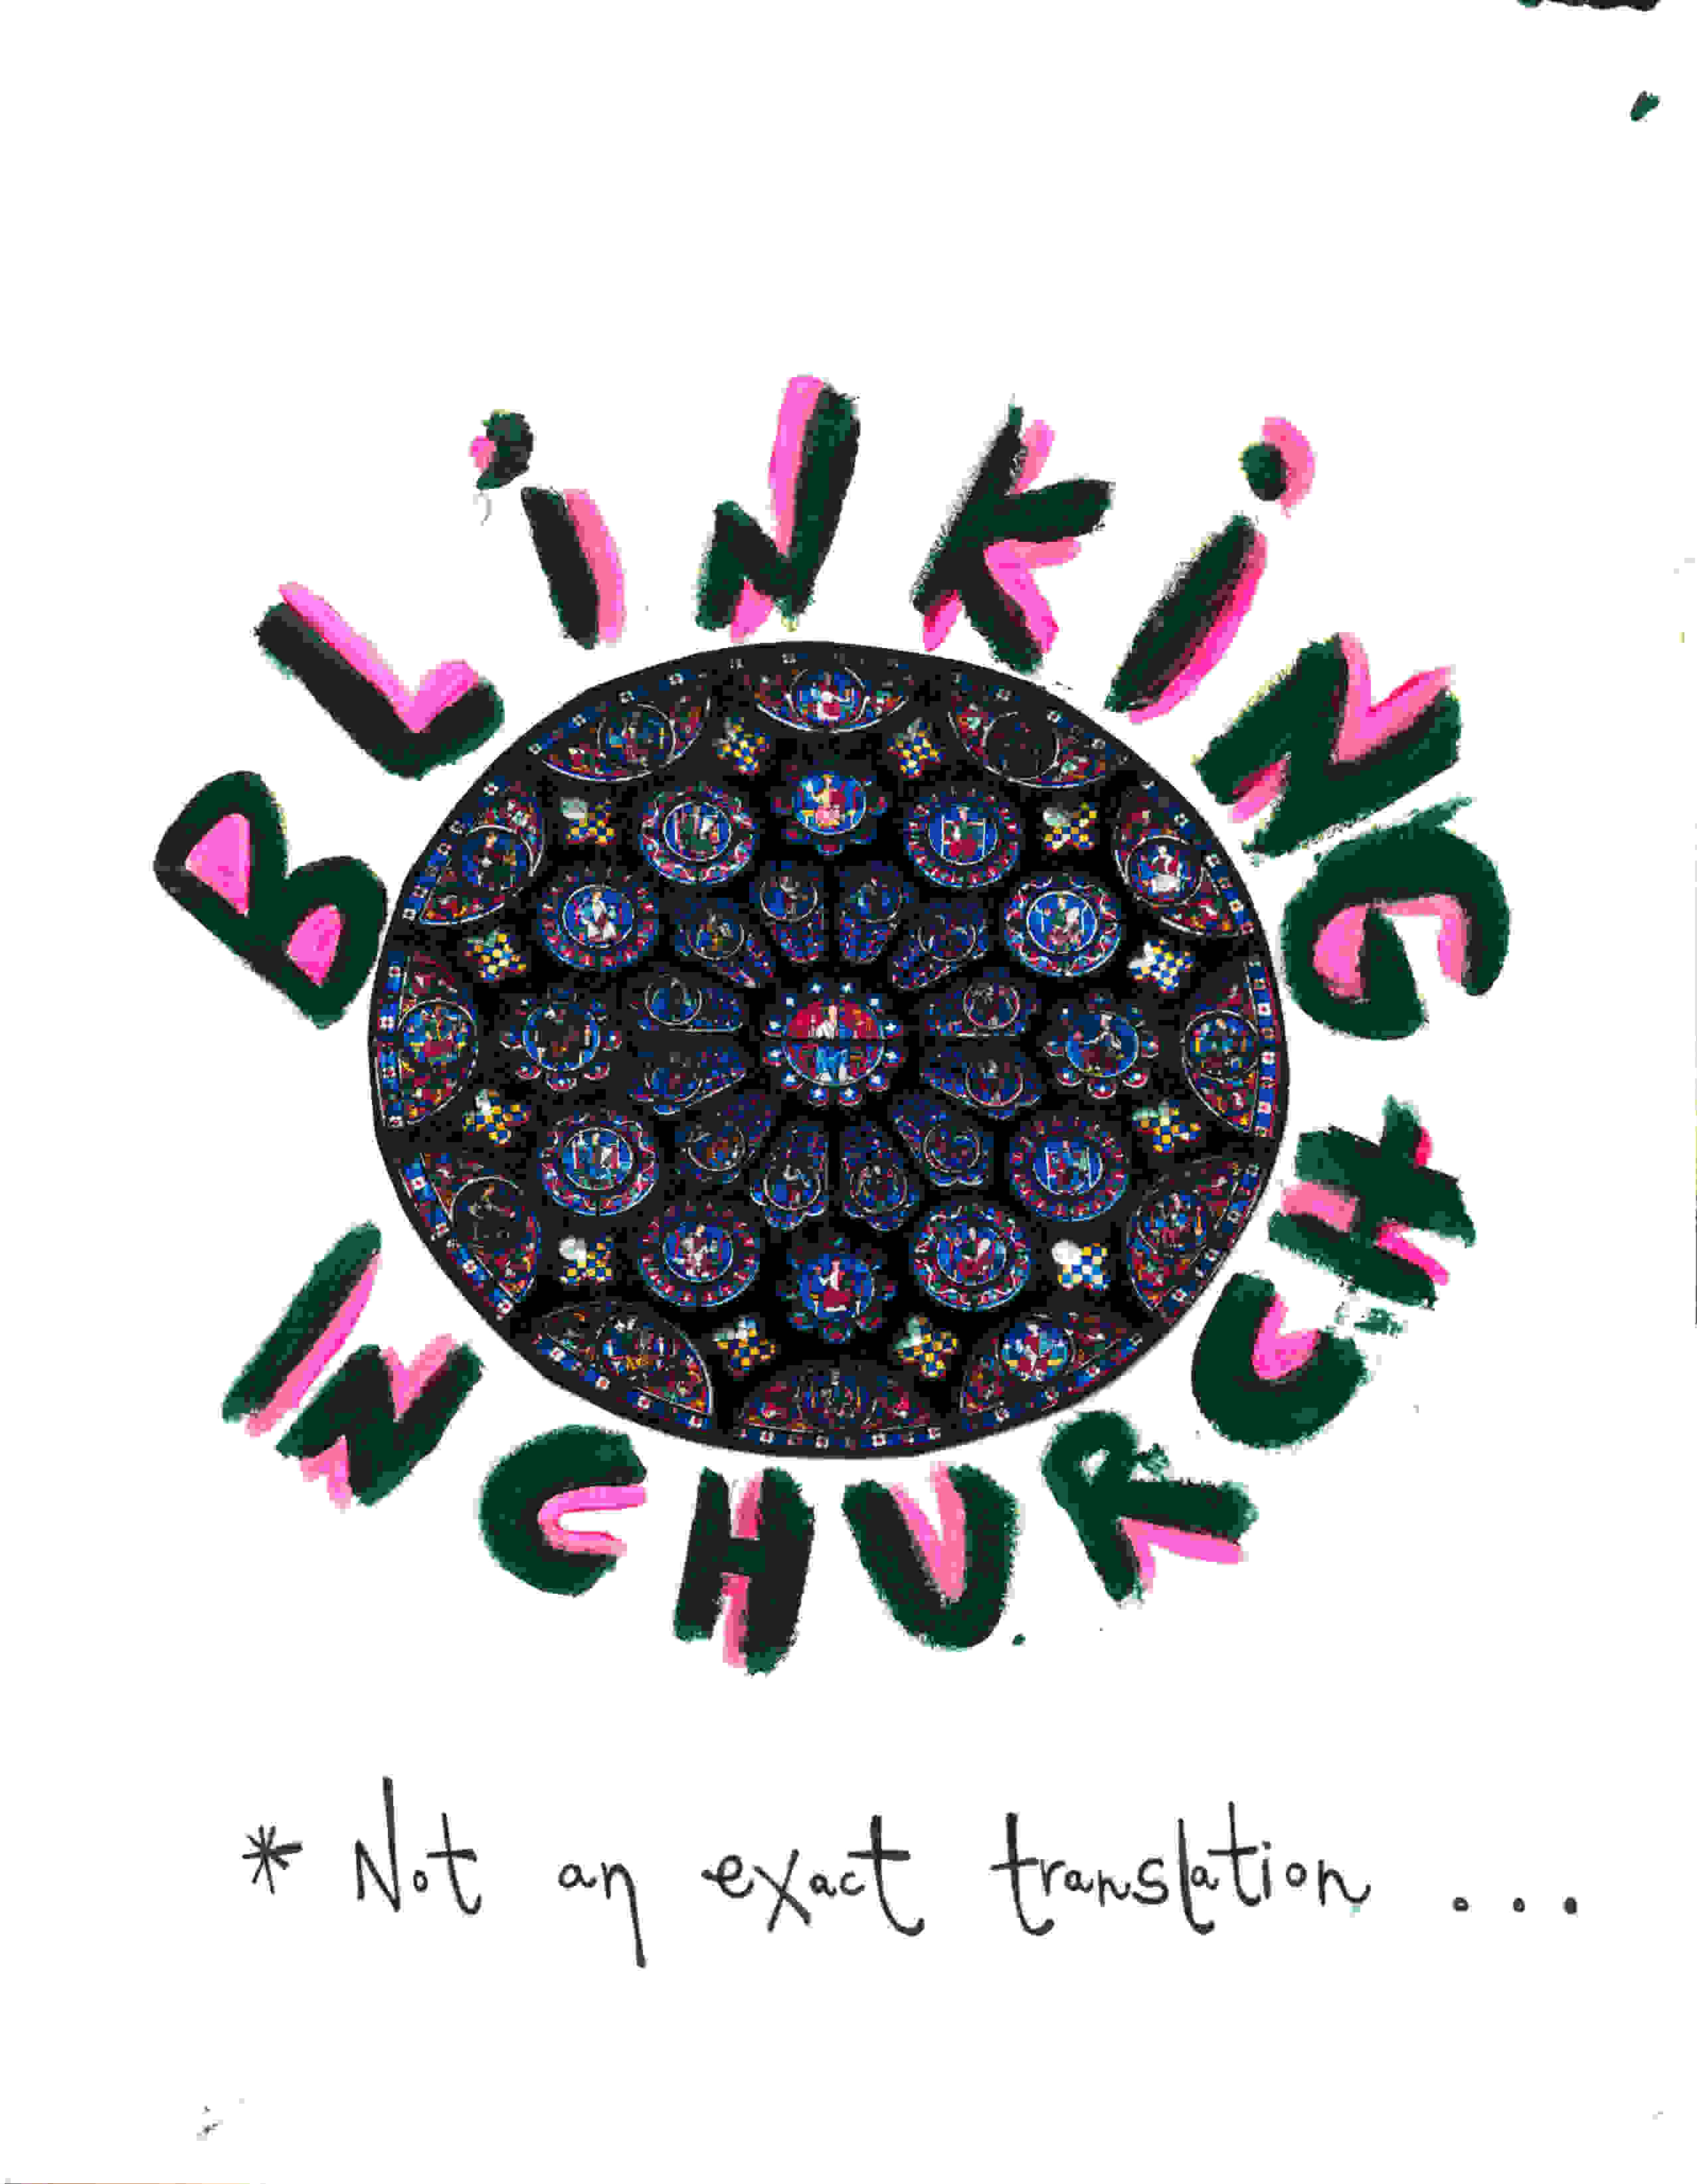 BLiNKiNG
IN CHURCH
* Not an exact translation ...